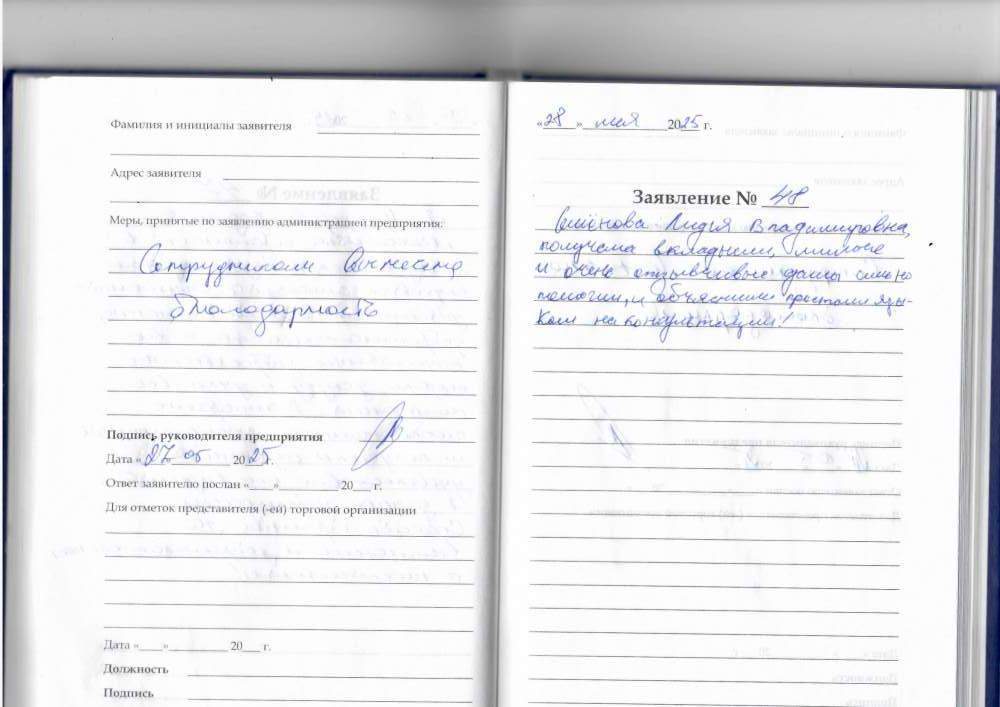 Фамилия и инициалы заявителя
Адрес заявителя
Меры, принятые по заявлению администрацией предприятия:
Сотрудникам
благодарность
Подпись руководителя предприятия
Дата «27» 05 2025 г.
Ответ заявителю послан «___»________ 20___ г.
Для отметок представителя (-ей) торговой организации
Дата «____»__________ 20___ г.
Должность
Подпись
«28» мая 2025 г.
Заявление № 48
Лидия Владимировна,
получила вкладыши, милые
и очень отзывчивые дамы
помогли, и объяснили простым язы-
ком на консультации!